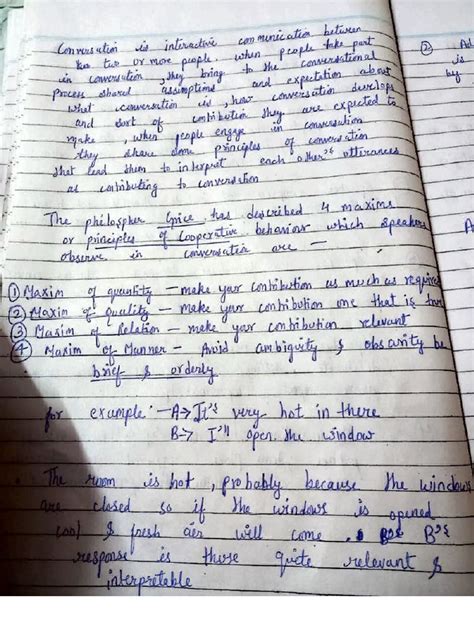 Conversation is interactive communication between
two or more people. when people take part
in conversation, they bring to the conversational
process shared assumptions and expectation about
what conversation is, how conversation develops
and sort of contribution they are expected to
make, when people engage in conversation
they share some principles of conversation
that lead them to interpret each other's utterances
as contributing to conversation
The philospher Grice has described 4 maxims
or principles of Cooperative behaviour which speakers
observe in conversation are —
① Maxim of quantity – make your contribution as much as required
② Maxim of quality – make your contribution one that is true
③ Maxim of Relation – make your contribution relevant
④ Maxim of Manner – Avoid ambiguity & obscurity be
brief & orderly
for example :- A→ It's very hot in there
B→ I'll open the window
The room is hot, probably because the windows
are closed so if the windows is opened
cool & fresh air will come. B's
response is thus quite relevant &
interpretable
② Ad
is
by